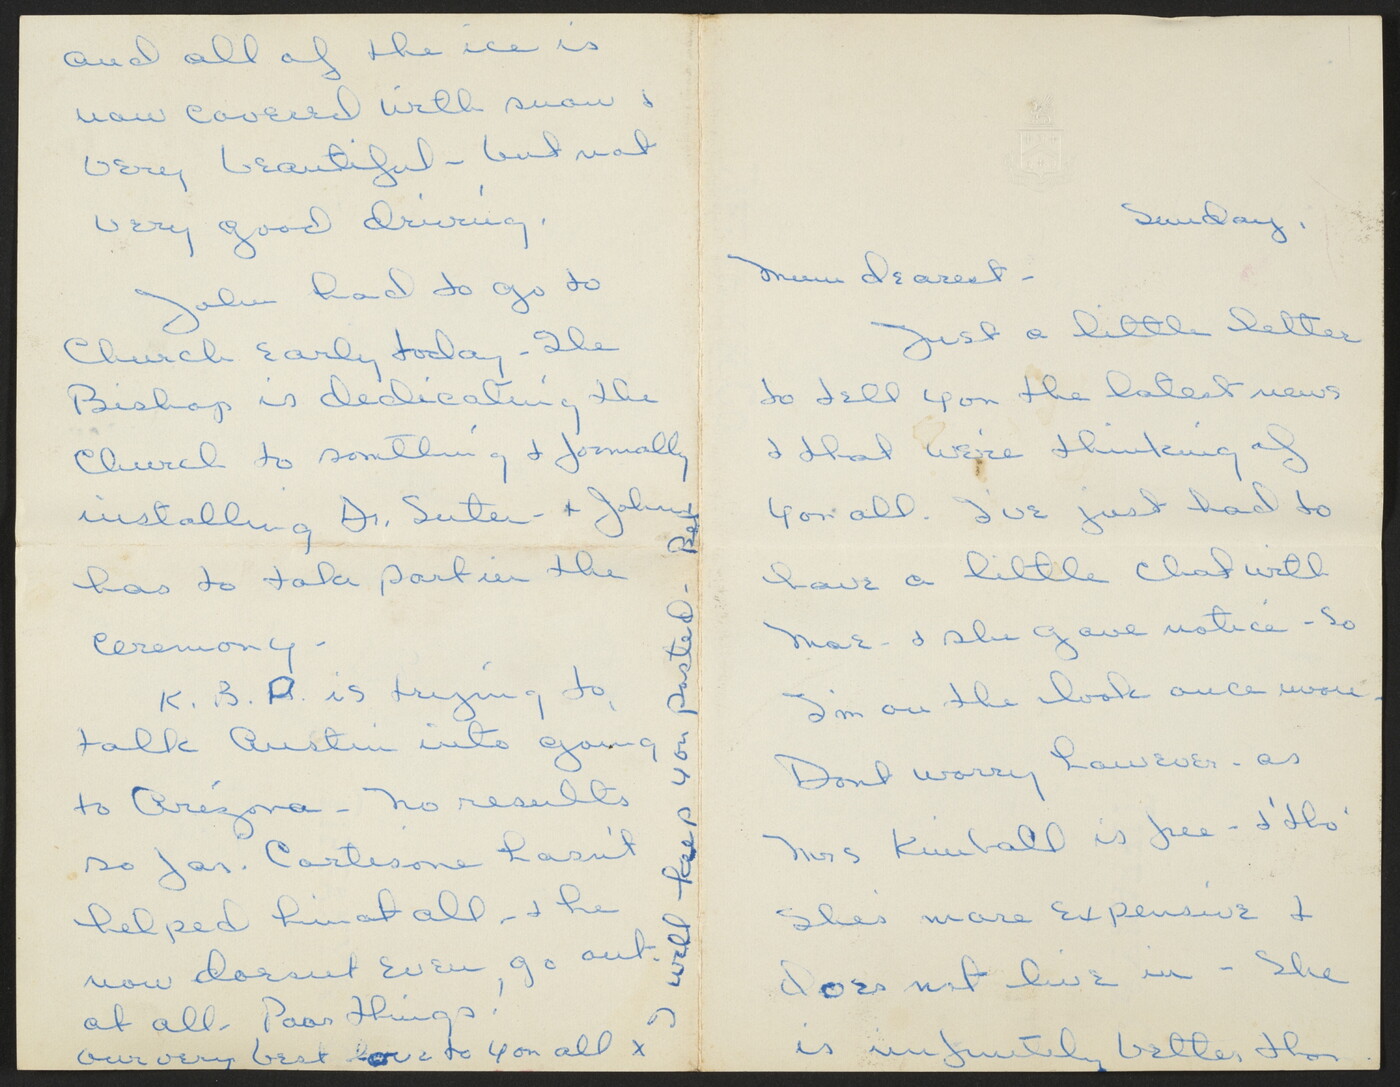 Sunday.
Mum dearest -
Just a little letter
to tell you the latest news
& that we're thinking of
you all. I've just had to
have a little chat with
Mae - & she gave notice - So
I'm on the look once more -
Dont worry however - as
Mrs Kimball is free - & 'tho'
She's more expensive &
does not live in - She
is infinitely better than
and all of the ice is
now covered with snow &
very beautiful - but not
very good driving.
John had to go to
Church early today - The
Bishop is dedicating the
Church to something & formally
installing Dr. Suter - & John
has to take part in the
ceremony -
K. B. R. is trying to
talk Austin into going
to Arizona - No results
so far. Cortisone hasn't
helped him at all - & he
now doesn't even go out
at all - Poor things!
our very best love to you all x
I will keep you posted - Bet